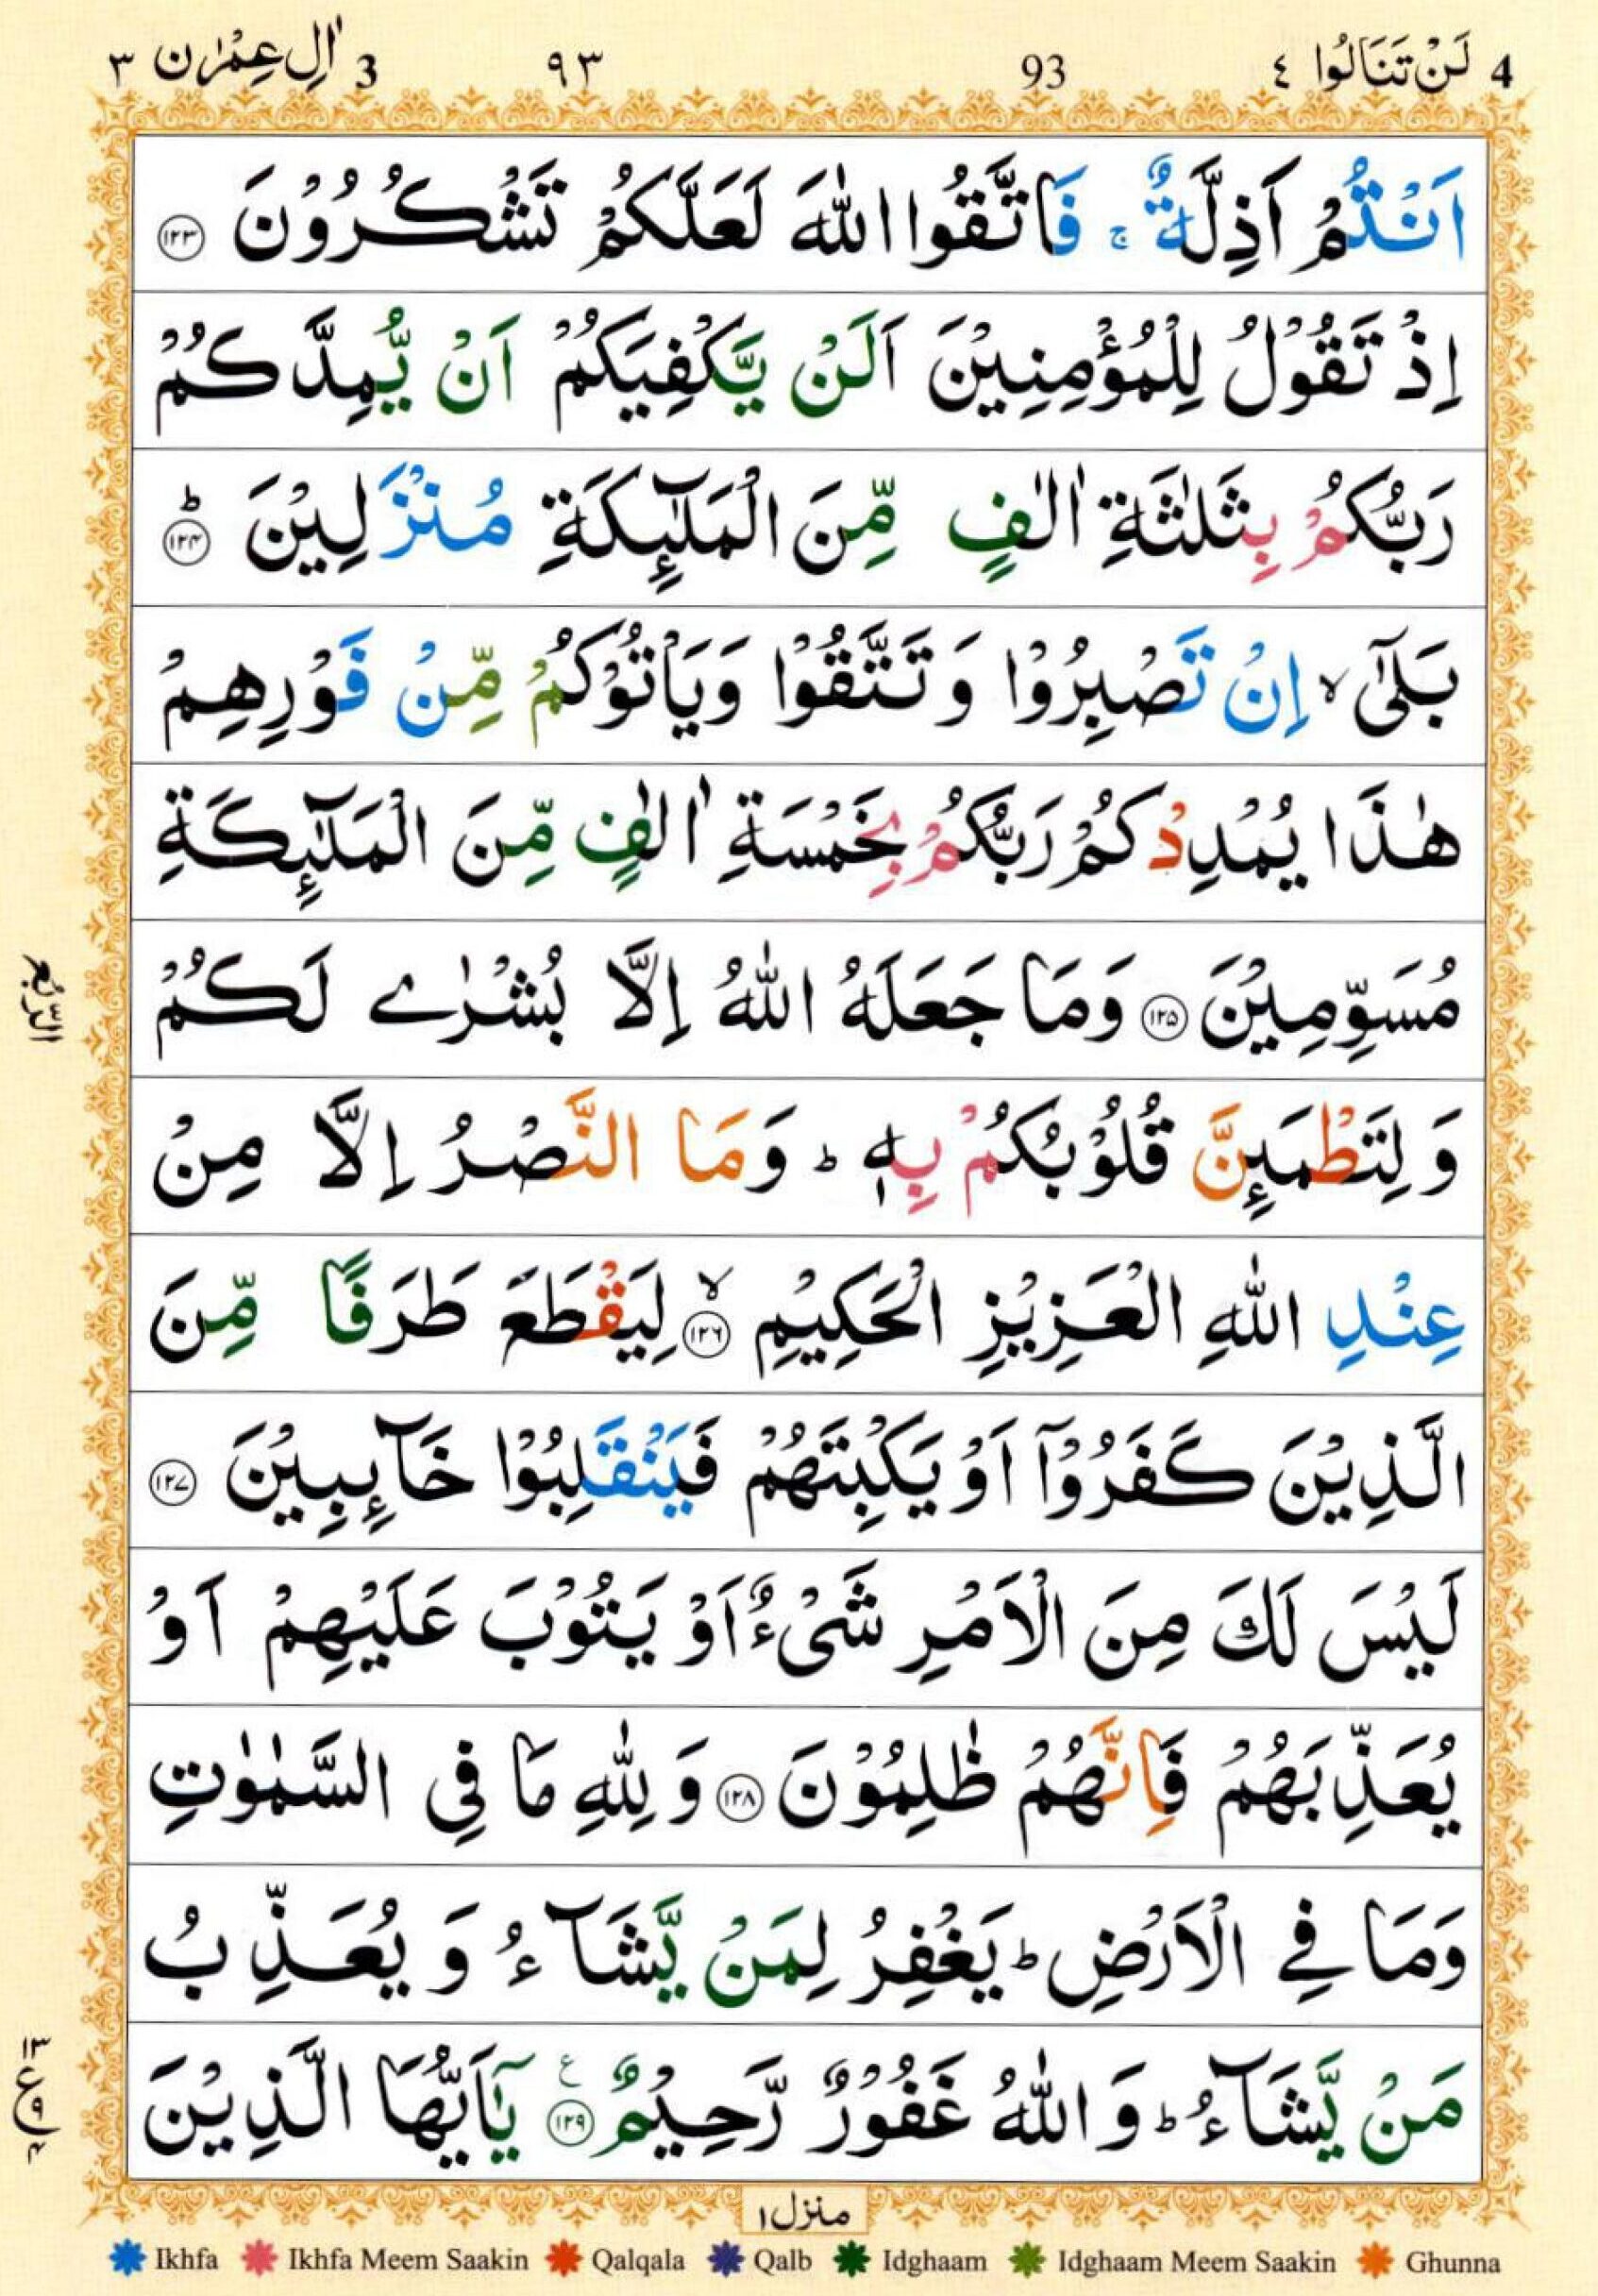 4 لَنْ تَنَالُوا ٤ 93 ٩٣ 3 اٰلِ عِمْرٰن ٣
اَنْتُمْ اَذِلَّةٌ ۚ فَاتَّقُوا اللّٰهَ لَعَلَّكُمْ تَشْكُرُوْنَ ۝۱۲۳
اِذْ تَقُوْلُ لِلْمُؤْمِنِيْنَ اَلَنْ يَّكْفِيَكُمْ اَنْ يُّمِدَّكُمْ
رَبُّكُمْ بِثَلٰثَةِ اٰلٰفٍ مِّنَ الْمَلٰٓئِكَةِ مُنْزَلِيْنَ ؕ۝۱۲۴
بَلٰٓى ۙ اِنْ تَصْبِرُوْا وَ تَتَّقُوْا وَيَاْتُوْكُمْ مِّنْ فَوْرِهِمْ
هٰذَا يُمْدِدْكُمْ رَبُّكُمْ بِخَمْسَةِ اٰلٰفٍ مِّنَ الْمَلٰٓئِكَةِ
مُسَوِّمِيْنَ ۝۱۲۵ وَمَا جَعَلَهُ اللّٰهُ اِلَّا بُشْرٰے لَكُمْ
الرّبع
وَ لِتَطْمَئِنَّ قُلُوْبُكُمْ بِهٖ ؕ وَمَا النَّصْرُ اِلَّا مِنْ
عِنْدِ اللّٰهِ الْعَزِيْزِ الْحَكِيْمِ ۙ۝۱۲۶ لِيَقْطَعَ طَرَفًا مِّنَ
الَّذِيْنَ كَفَرُوْۤا اَوْ يَكْبِتَهُمْ فَيَنْقَلِبُوْا خَآئِبِيْنَ ۝۱۲۷
لَيْسَ لَكَ مِنَ الْاَمْرِ شَیْءٌ اَوْ يَتُوْبَ عَلَيْهِمْ اَوْ
يُعَذِّبَهُمْ فَاِنَّهُمْ ظٰلِمُوْنَ ۝۱۲۸ وَ لِلّٰهِ مَا فِى السَّمٰوٰتِ
وَمَا فِے الْاَرْضِ ؕ يَغْفِرُ لِمَنْ يَّشَآءُ وَ يُعَذِّبُ
مَنْ يَّشَآءُ ؕ وَ اللّٰهُ غَفُوْرٌ رَّحِيْمٌ ۝۱۲۹ ع يٰۤاَيُّهَا الَّذِيْنَ
۱۳ ع ۹ ۴
منزل ۱
Ikhfa Ikhfa Meem Saakin Qalqala Qalb Idghaam Idghaam Meem Saakin Ghunna